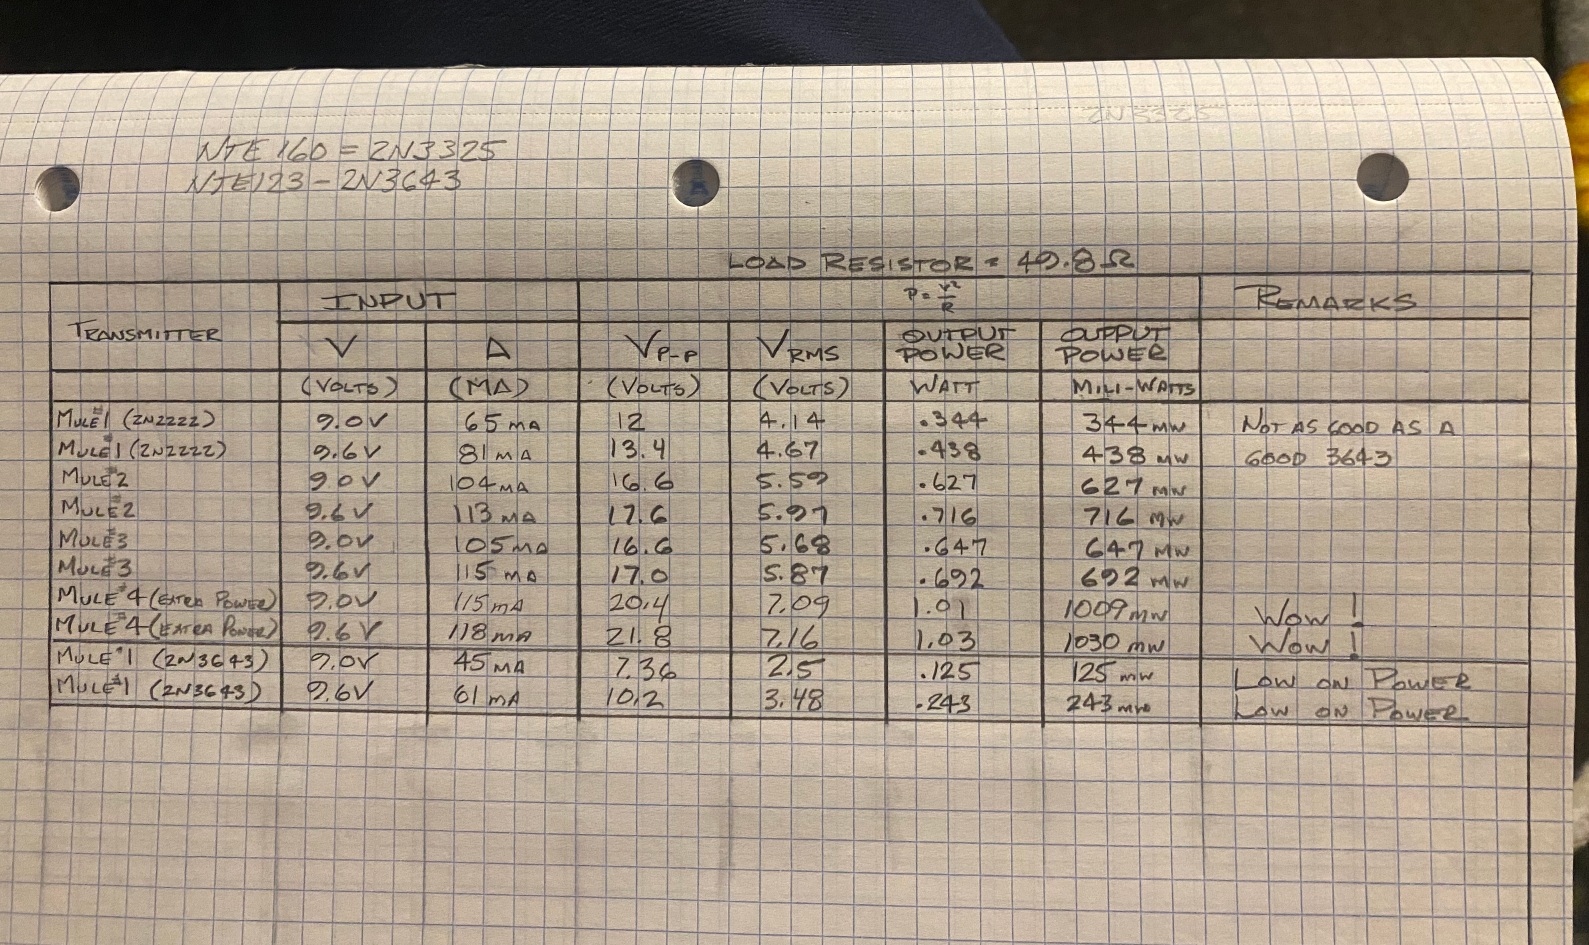 2N3325
NTE 160 = 2N3325
NTE123 - 2N3643
LOAD RESISTOR = 49.8 Ω
TRANSMITTER INPUT P = V²/R REMARKS
V A VP-P VRMS OUTPUT POWER OUPPUT POWER
(VOLTS) (MA) (VOLTS) (VOLTS) WATT MILI-WATTS
MULE#1 (2N2222) 9.0V 65 MA 12 4.14 .344 344 MW NOT AS GOOD AS A
MULE#1 (2N2222) 9.6V 81 MA 13.4 4.67 .438 438 MW GOOD 3643
MULE#2 9.0V 104 MA 16.6 5.59 .627 627 MW
MULE#2 9.6V 113 MA 17.6 5.97 .716 716 MW
MULE#3 9.0V 105 MA 16.6 5.68 .647 647 MW
MULE#3 9.6V 115 MA 17.0 5.87 .692 692 MW
MULE#4 (EXTRA POWER) 9.0V 115 MA 20.4 7.09 1.01 1009 MW WOW!
MULE#4 (EXTRA POWER) 9.6V 118 MA 21.8 7.16 1.03 1030 MW WOW!
MULE#1 (2N3643) 9.0V 45 MA 7.36 2.5 .125 125 MW LOW ON POWER
MULE#1 (2N3643) 9.6V 61 MA 10.2 3.48 .243 243 MW LOW ON POWER